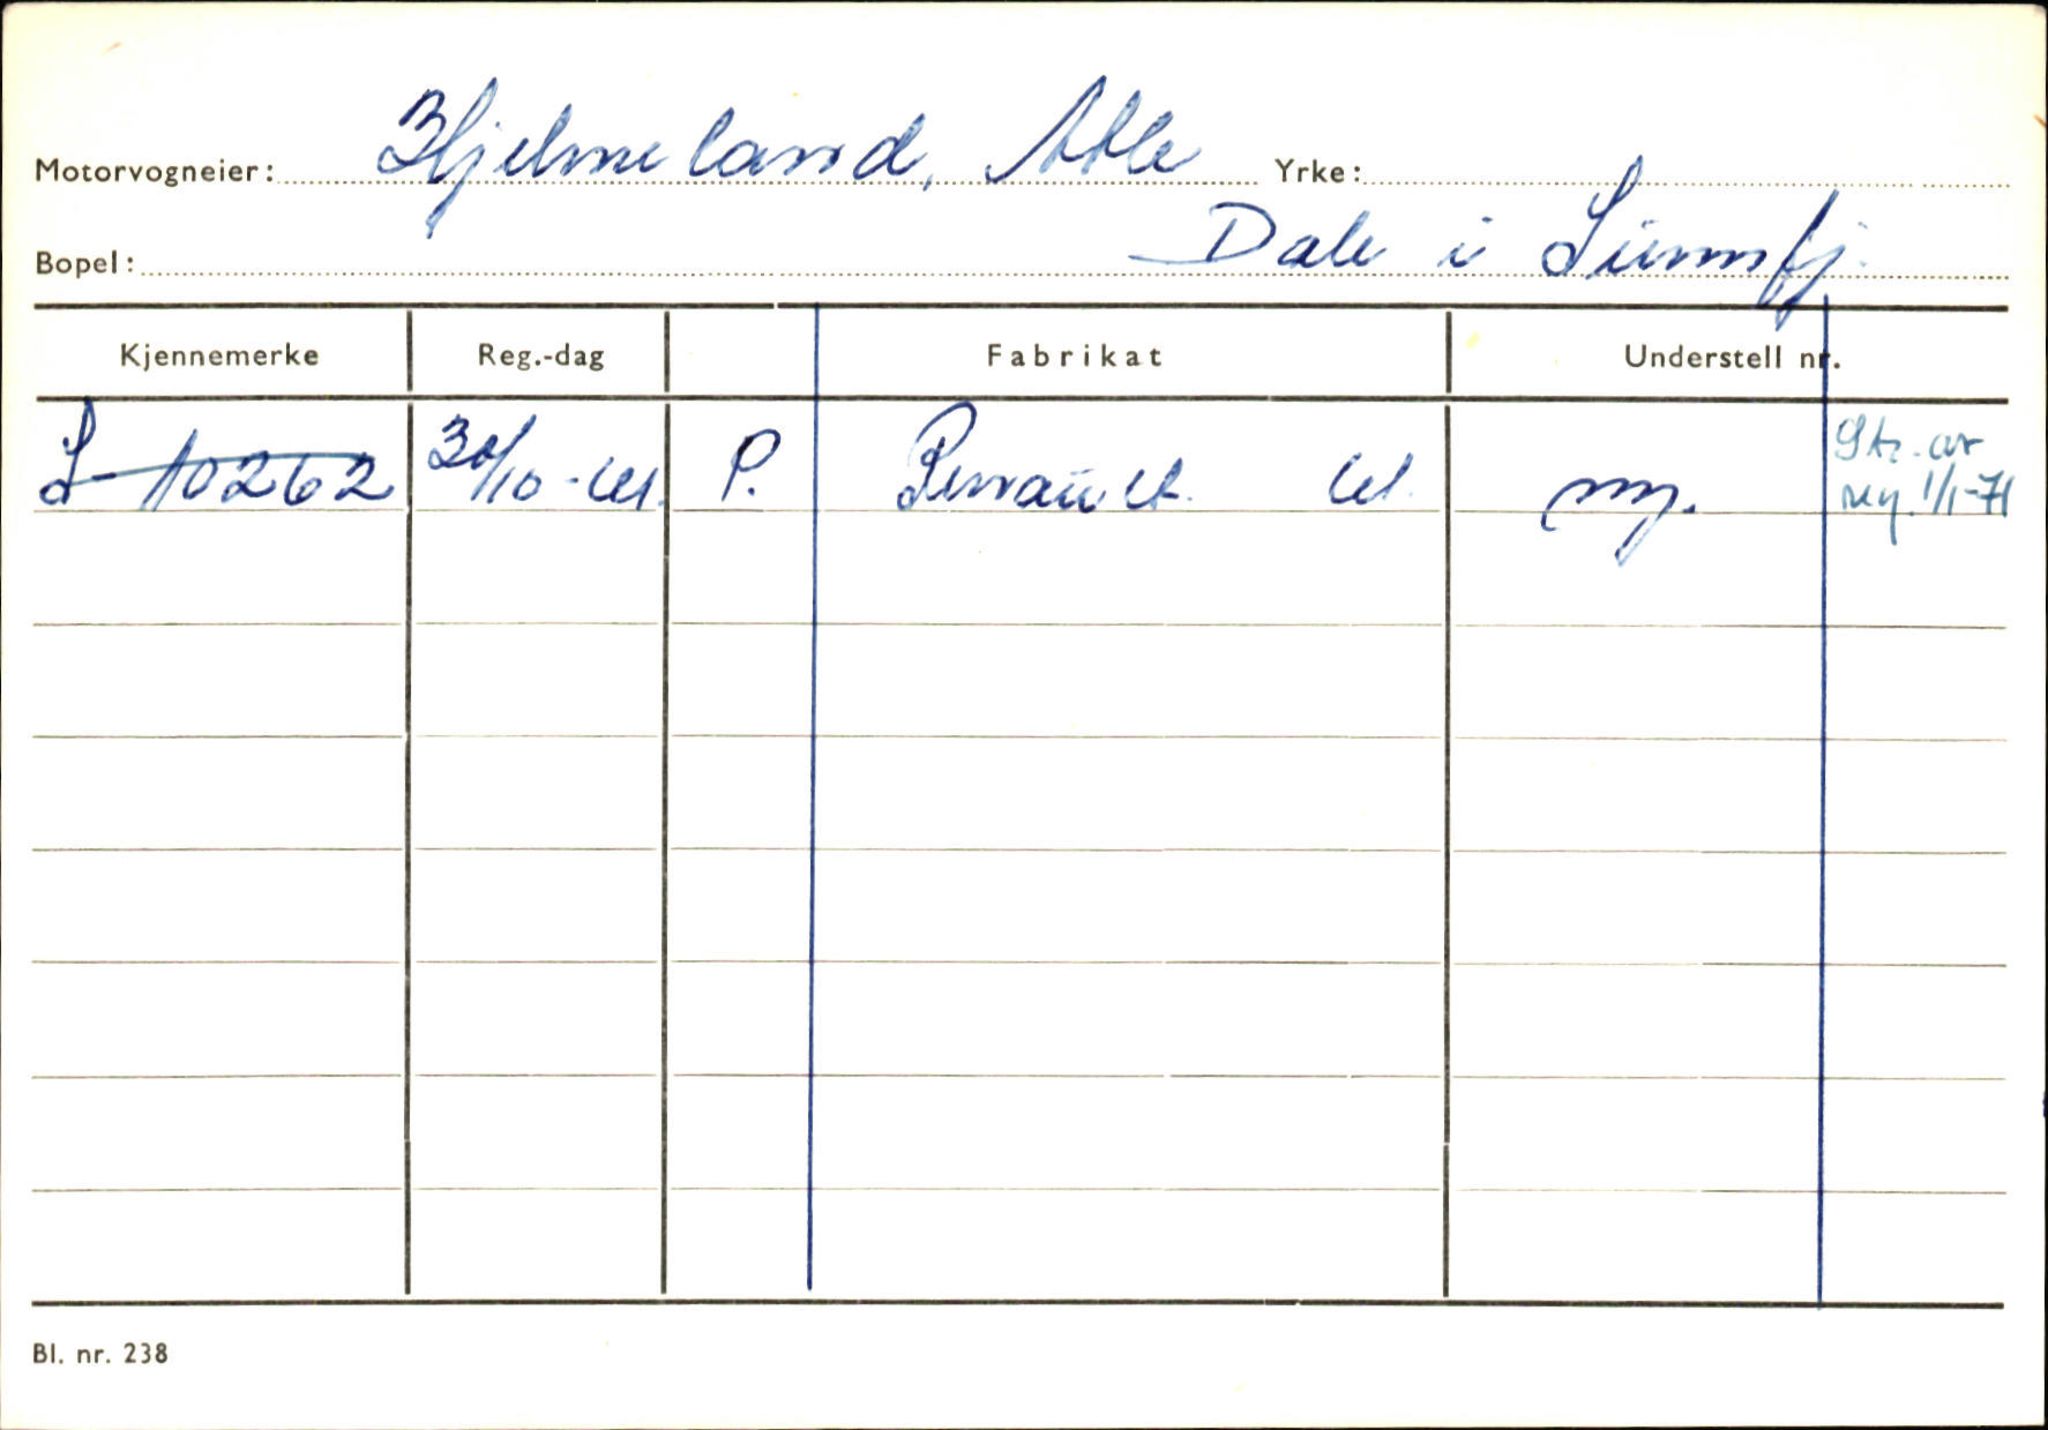 Motorvogneier: Hjelmeland, Atle Yrke:
Bopel: Dale i Sunnfj.
Kjennemerke Reg.-dag Fabrikat Understell nr.
S-10262 30/10-61. P. Renault 61. ny. Str. av
reg. 1/1-71
Bl. nr. 238